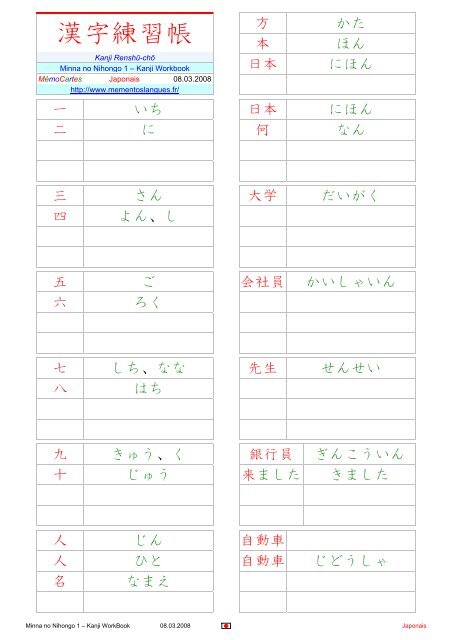 漢字練習帳
Kanji Renshū-chō
Minna no Nihongo 1 – Kanji Workbook
MémoCartes Japonais 08.03.2008
http://www.mementoslangues.fr/
一 いち
二 に
三 さん
四 よん、し
五 ご
六 ろく
七 しち、なな
八 はち
九 きゅう、く
十 じゅう
人 じん
人 ひと
名 なまえ
方 かた
本 ほん
日本 にほん
日本 にほん
何 なん
大学 だいがく
会社員 かいしゃいん
先生 せんせい
銀行員 ぎんこういん
来ました きました
自動車
自動車 じどうしゃ
Minna no Nihongo 1 – Kanji WorkBook 08.03.2008 Japonais